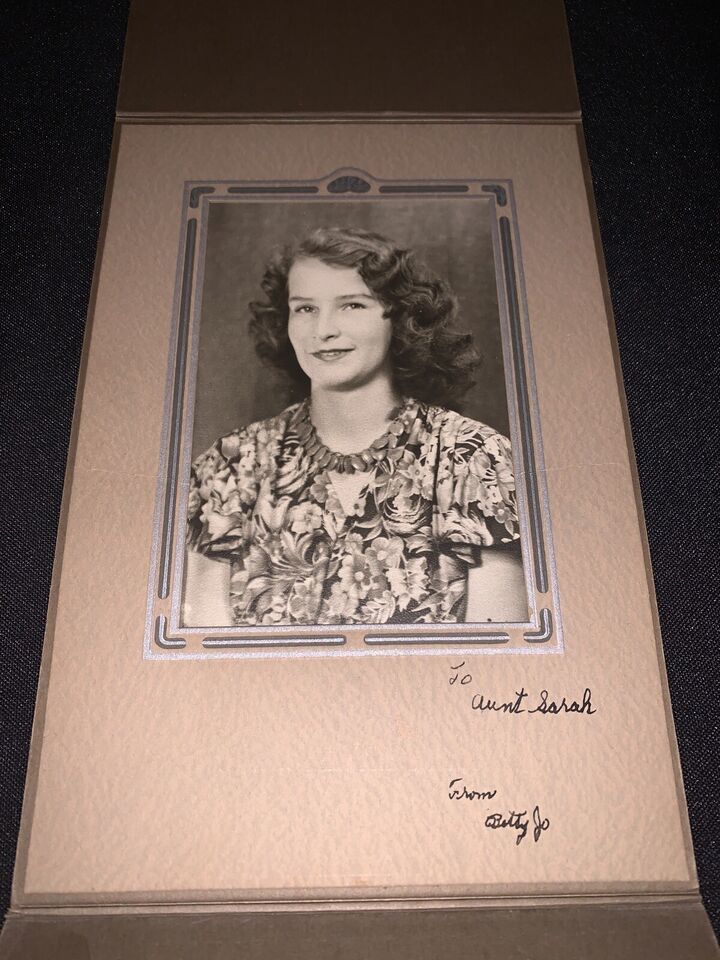 To
Aunt Sarah
From
Betty Jo